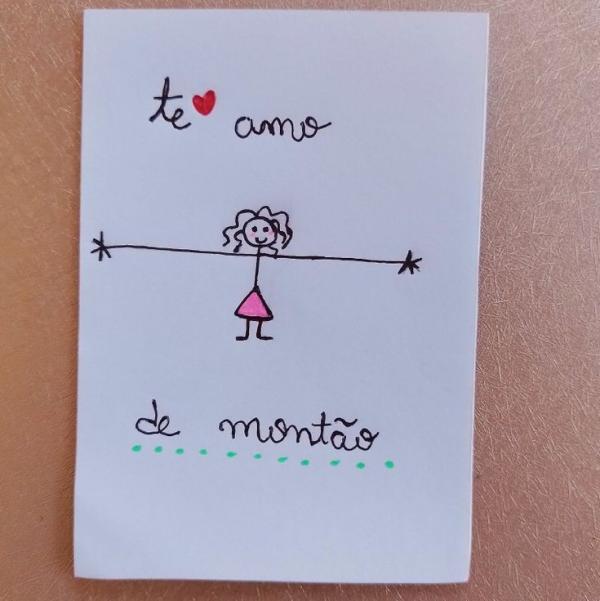 te amo
de montão